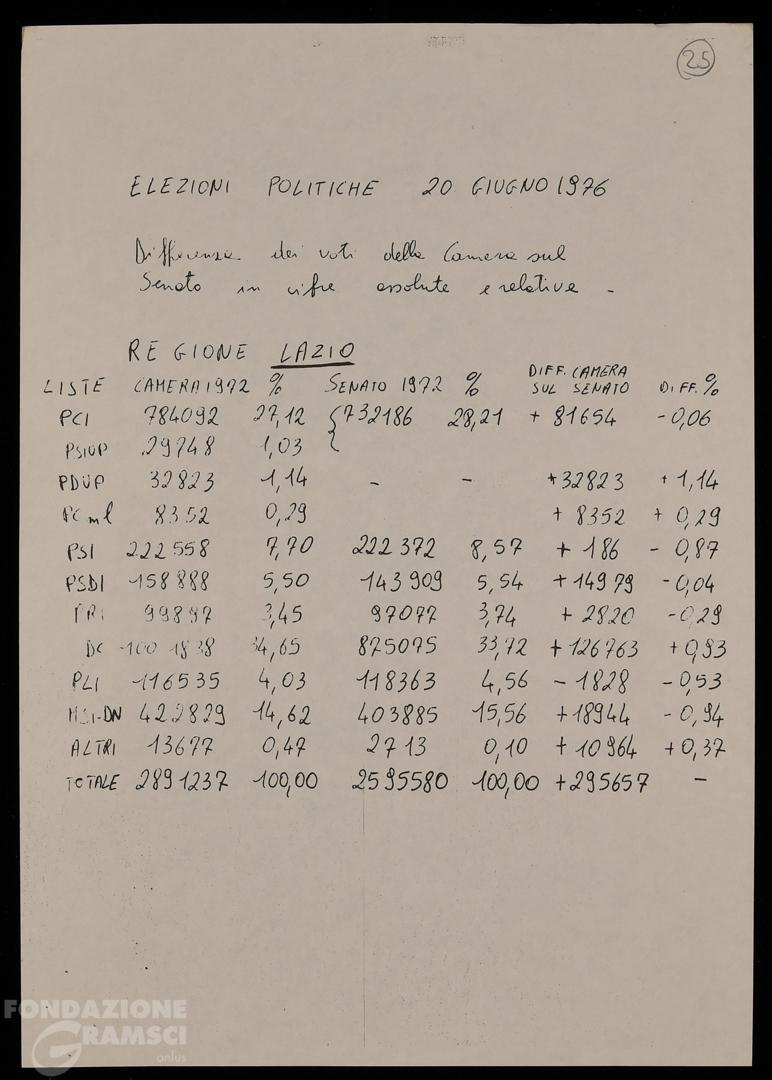 25
ELEZIONI POLITICHE 20 GIUGNO 1976
Differenza dei voti della Camera sul
Senato in cifre assolute e relative -
REGIONE LAZIO
LISTE CAMERA 1972 % SENATO 1972 % DIFF. CAMERA SUL SENATO DIFF. %
PCI 784092 27,12 { 732186 28,21 + 81654 - 0,06
PSIUP 29748 1,03
PDUP 32823 1,14 - - + 32823 + 1,14
PCml 8352 0,29 + 8352 + 0,29
PSI 222558 7,70 222372 8,57 + 186 - 0,87
PSDI 158888 5,50 143909 5,54 + 14979 - 0,04
PRI 99897 3,45 97077 3,74 + 2820 - 0,29
DC 1001838 34,65 875075 33,72 + 126763 + 0,93
PLI 116535 4,03 118363 4,56 - 1828 - 0,53
MSI-DN 422829 14,62 403885 15,56 + 18944 - 0,94
ALTRI 13677 0,47 2713 0,10 + 10964 + 0,37
TOTALE 2891237 100,00 2595580 100,00 + 295657 -
FONDAZIONE
GRAMSCI
onlus